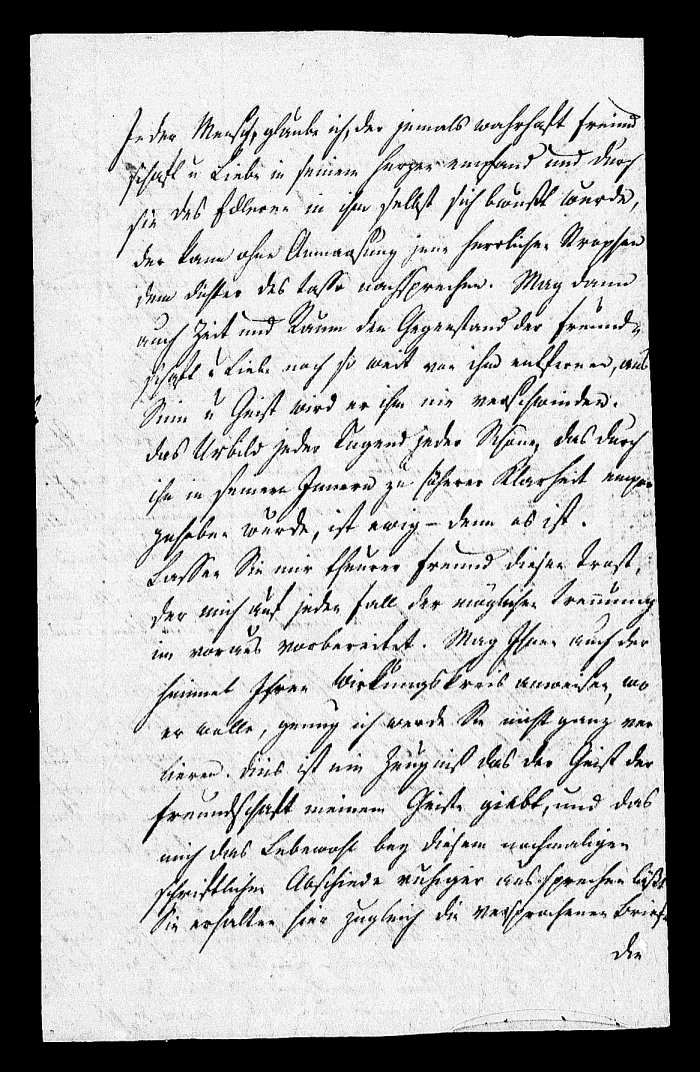 Jeder Mensch, glaube ich, der jemals wahrhaft Freund
schaft u Liebe in seinem Herzen empfand und durch
sie des Edleren in ihm selbst sich bewußt wurde,
der kann ohne Anmaasung jene herrlichen Strophen
dem Dichter des Tasso nachsprechen. Mag dann
auch Zeit und Raum den Gegenstand der Freund-
schaft u Liebe noch so weit von ihm entfernen, aus
Sinn u Geist wird er ihm nie verschwinden.
Das Urbild jeder Tugend jeder Schöne, das durch
ihn in seinem Innern zu höherer Klarheit empor
gehoben wurde, ist ewig – denn es ist.
Lassen Sie mir theurer Freund diesen Trost,
der mich auf jeden Fall der möglichen Trennung
im voraus vorbereitet. Mag Ihnen auch der
Himmel Ihren Wirkungskreis anweisen, wo
er wolle, genug ich werde Sie nicht ganz ver
lieren. Dies ist ein Zeugniß das der Geist der
Freundschaft meinem Geiste giebt, und das
mich das Lebewohl bey diesem nochmaligen
schriftlichen Abschiede ruhiger aussprechen läßt
Sie erhalten hier zugleich die versprochenen Briefe
die